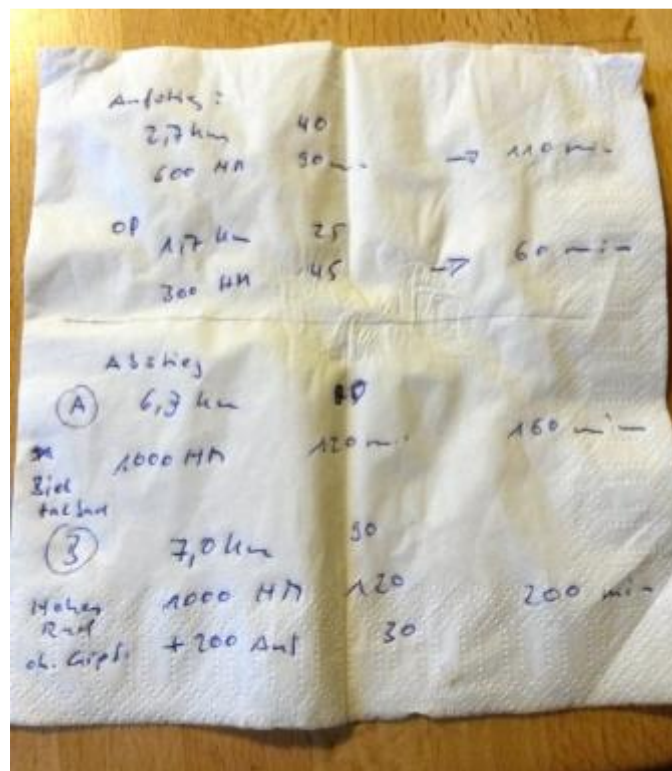 Aufstieg:
2,7 km 40
600 HM 90 min → 110 min
OP 1,7 km 25
300 HM 45 → 60 min
Abstieg
(A) 6,7 km
1000 HM 120 min 160 min
Biel
talbad
(B) 7,0 km 90
Hohes 1000 HM 120 200 min
Rad + 200 Auf 30
oh. Gipf.